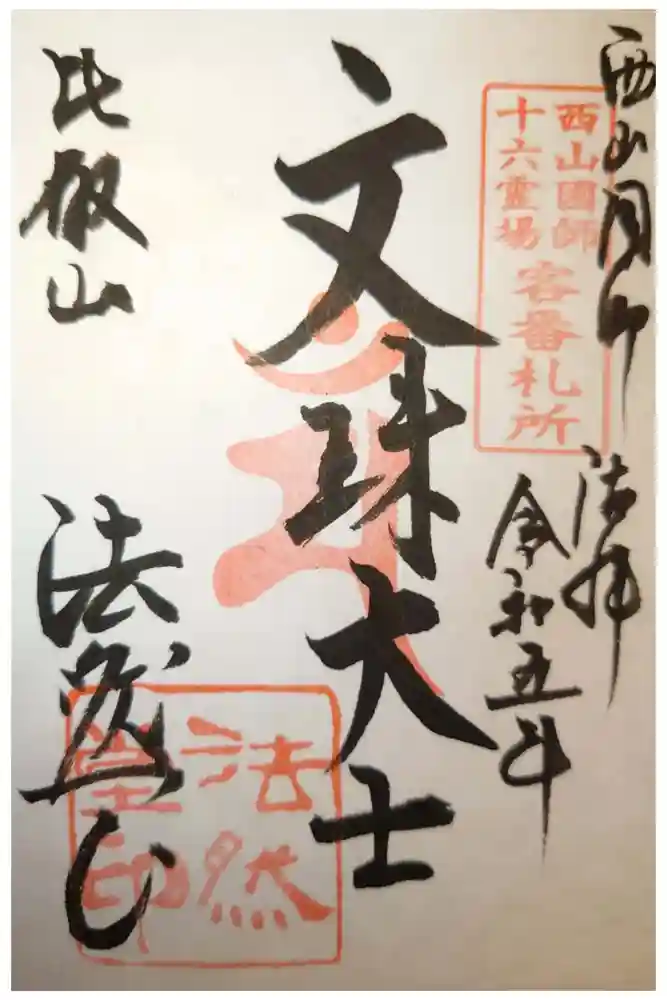 西山国師
西山國師
十六霊場
客番札所
令和五年
文珠大士
比叡山
法然堂
法然
堂印